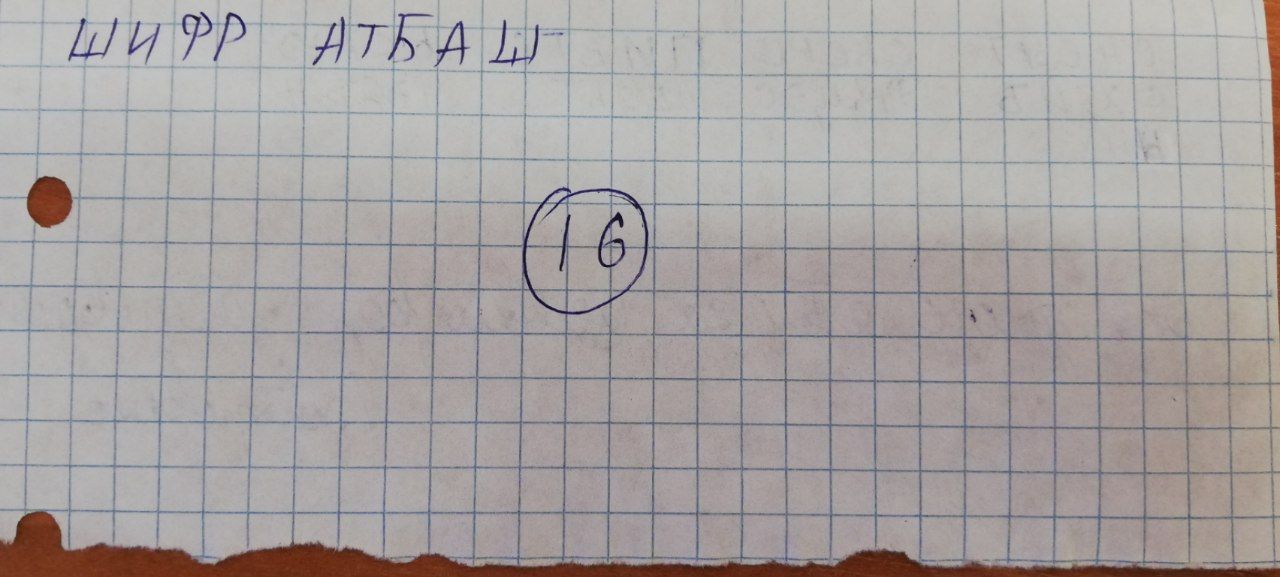 ШИФР АТБАШ
16